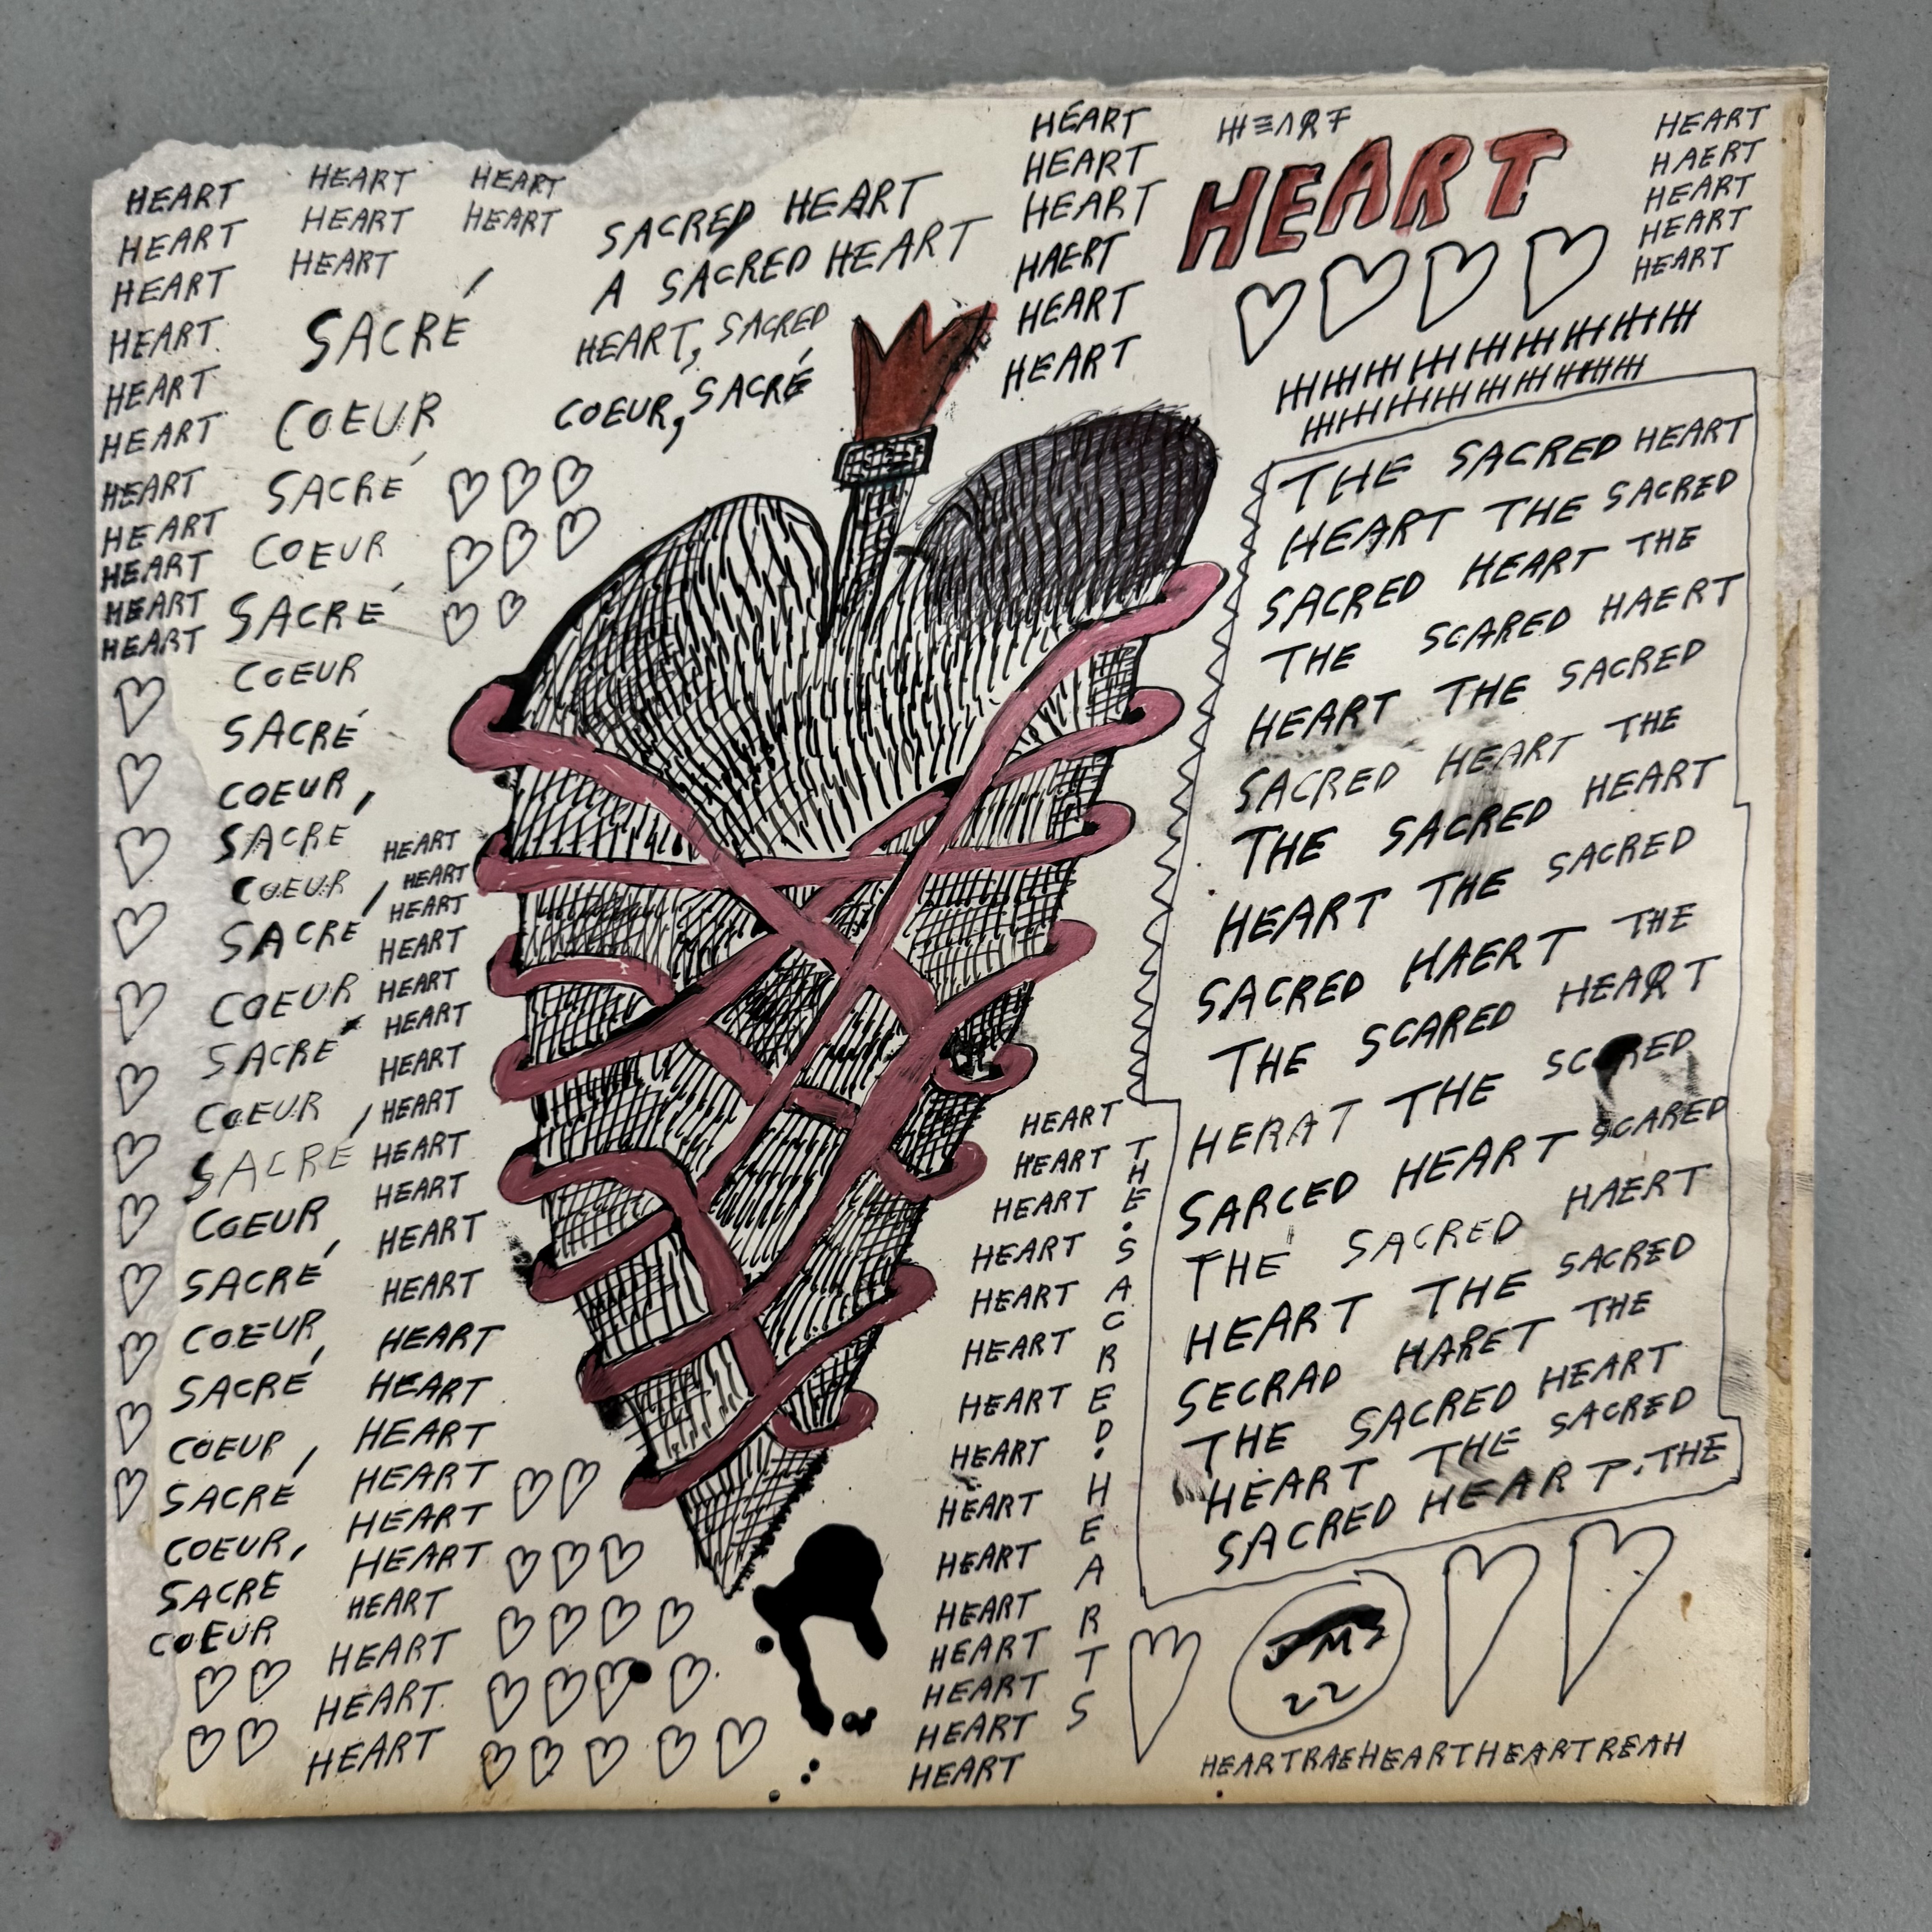 HEART
HEART
HEART
HEART
HEART
HEART
HEART
HEART
HEART
HEART
HEART
HEART
HEART
HEART
HEART
HEART
SACRÉ
COEUR
SACRÉ
COEUR
SACRÉ
COEUR
SACRÉ
COEUR,
SACRÉ
COEUR,
SACRÉ
COEUR
SACRÉ
COEUR,
SACRÉ
COEUR,
SACRÉ
COEUR,
SACRÉ
COEUR,
SACRÉ
COEUR,
SACRE
COEUR
HEART
HEART
HEART
HEART
HEART
HEART
HEART
HEART
HEART
HEART
HEART
HEART
HEART
HEART
HEART
HEART
HEART
HEART
HEART
HEART
HEART
HEART
SACRED HEART
A SACRED HEART
HEART, SACRED
COEUR, SACRÉ
HEART
HEART
HEART
HAERT
HEART
HEART
HEART
HEART
HEART
HAERT
HEART
HEART
HEART
THE SACRED HEART
HEART THE SACRED
SACRED HEART THE
THE SCARED HAERT
HEART THE SACRED
SACRED HEART THE
THE SACRED HEART
HEART THE SACRED
SACRED HAERT THE
THE SCARED HEART
HERAT THE SCARED
SARCED HEART SCARED
THE SACRED HAERT
HEART THE SACRED
SECRAD HARET THE
THE SACRED HEART
HEART THE SACRED
SACRED HEART.THE
HEART
HEART
HEART
HEART
HEART
HEART
HEART
HEART
HEART
HEART
HEART
HEART
HEART
HEART
HEART
THE.SACRED.HEARTS
JMS
22
HEARTRAEHEARTHEARTREAH